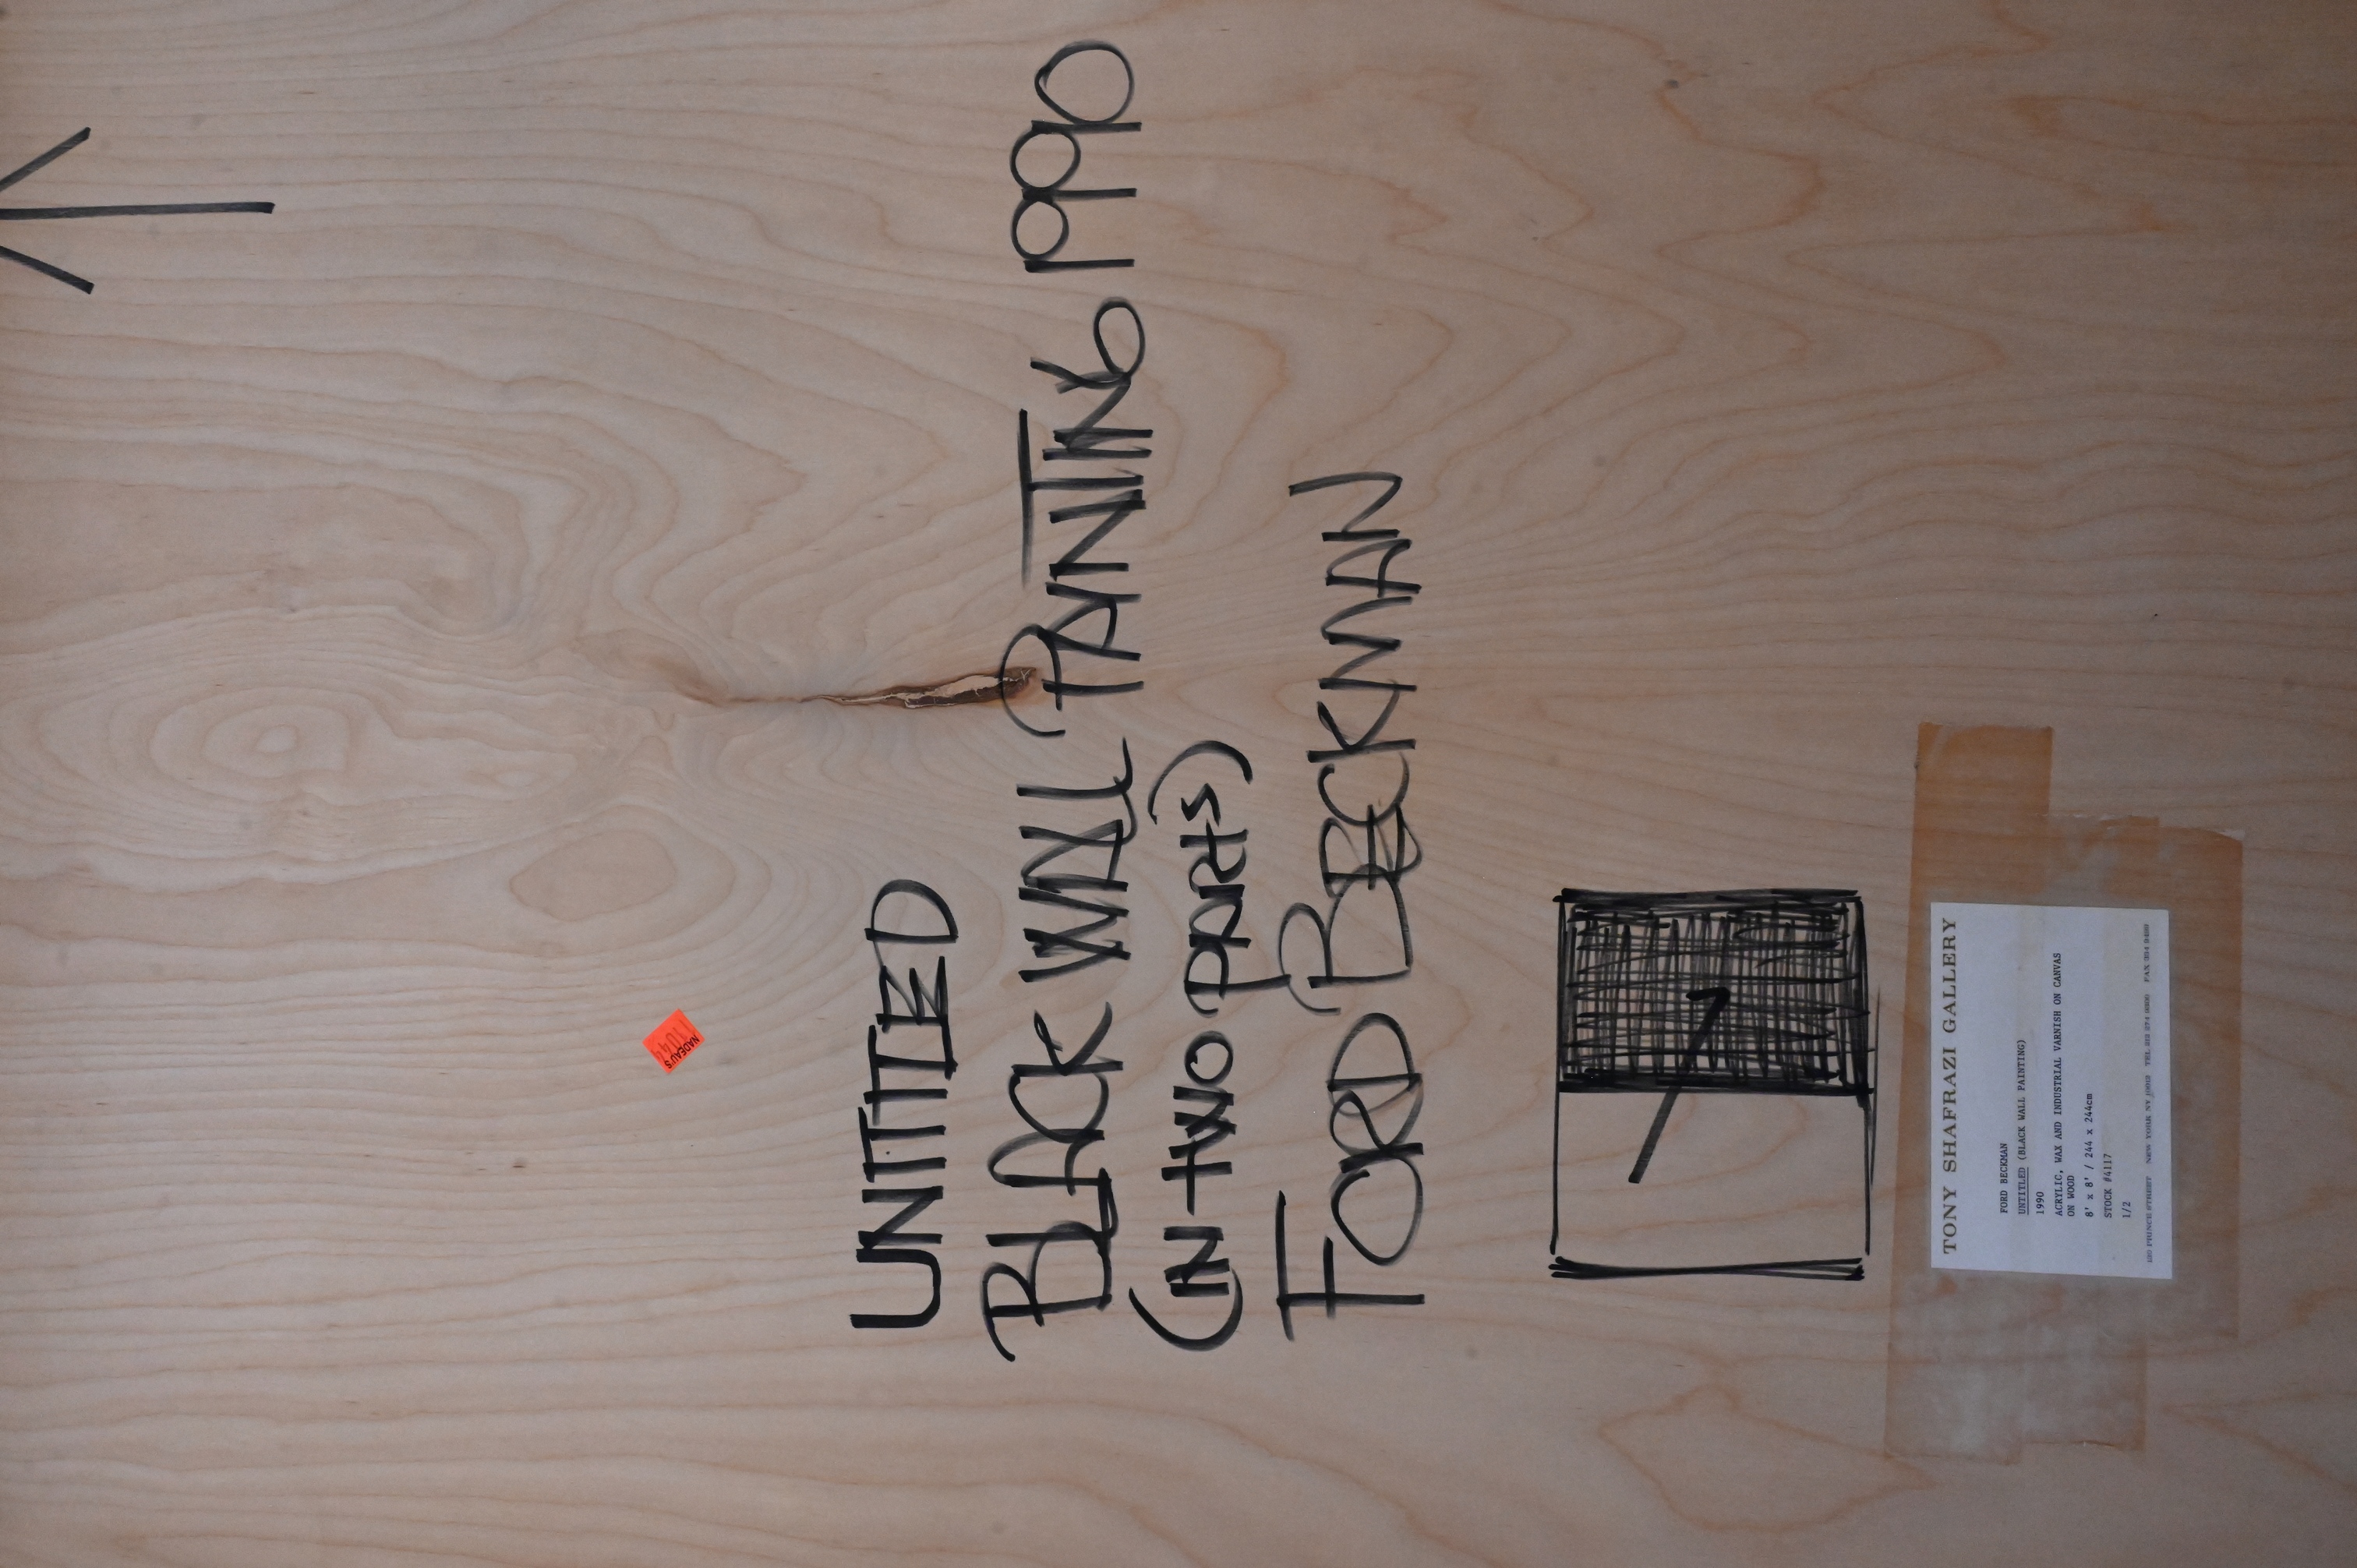 UNTITLED
BLACK WALL PAINTING 1990
(IN TWO PARTS)
FORD BECKMAN
NADEAU'S
TONY SHAFRAZI GALLERY
FORD BECKMAN
UNTITLED (BLACK WALL PAINTING)
1990
ACRYLIC, WAX AND INDUSTRIAL VARNISH ON CANVAS
ON WOOD
8' x 8' / 244 x 244cm
STOCK #4117
1/2
130 PRINCE STREET NEW YORK NY 10012 TEL 212 FAX